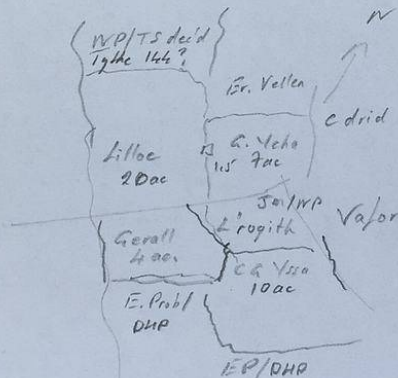 N
NP/TS dec'd
Tythe 144?
Er. Vellen
C drid
Lilloe
20ac
G. Ycha
7ac
13
1.5
Jm/NP
L'rogith
Vafor
Gerall
4 ac.
C G Yssa
10 ac
E. Prob/
DHP
EP/DHP